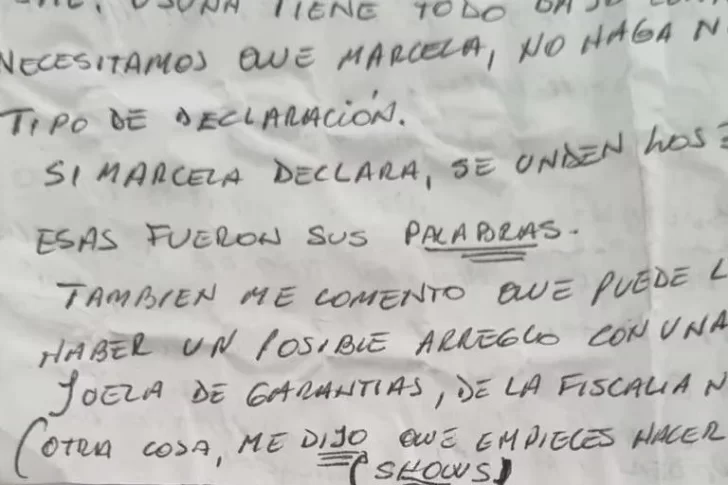 OSUNA TIENE TODO BAJO
NECESITAMOS QUE MARCELA, NO HAGA
TIPO DE DECLARACIÓN.
SI MARCELA DECLARA, SE UNDEN LOS
ESAS FUERON SUS PALABRAS.
TAMBIEN ME COMENTO QUE PUEDE
HABER UN POSIBLE ARREGLO CON UNA
JUEZA DE GARANTIAS, DE LA FISCALIA
(OTRA COSA, ME DIJO QUE EMPIECES HACER
(SHOWS)